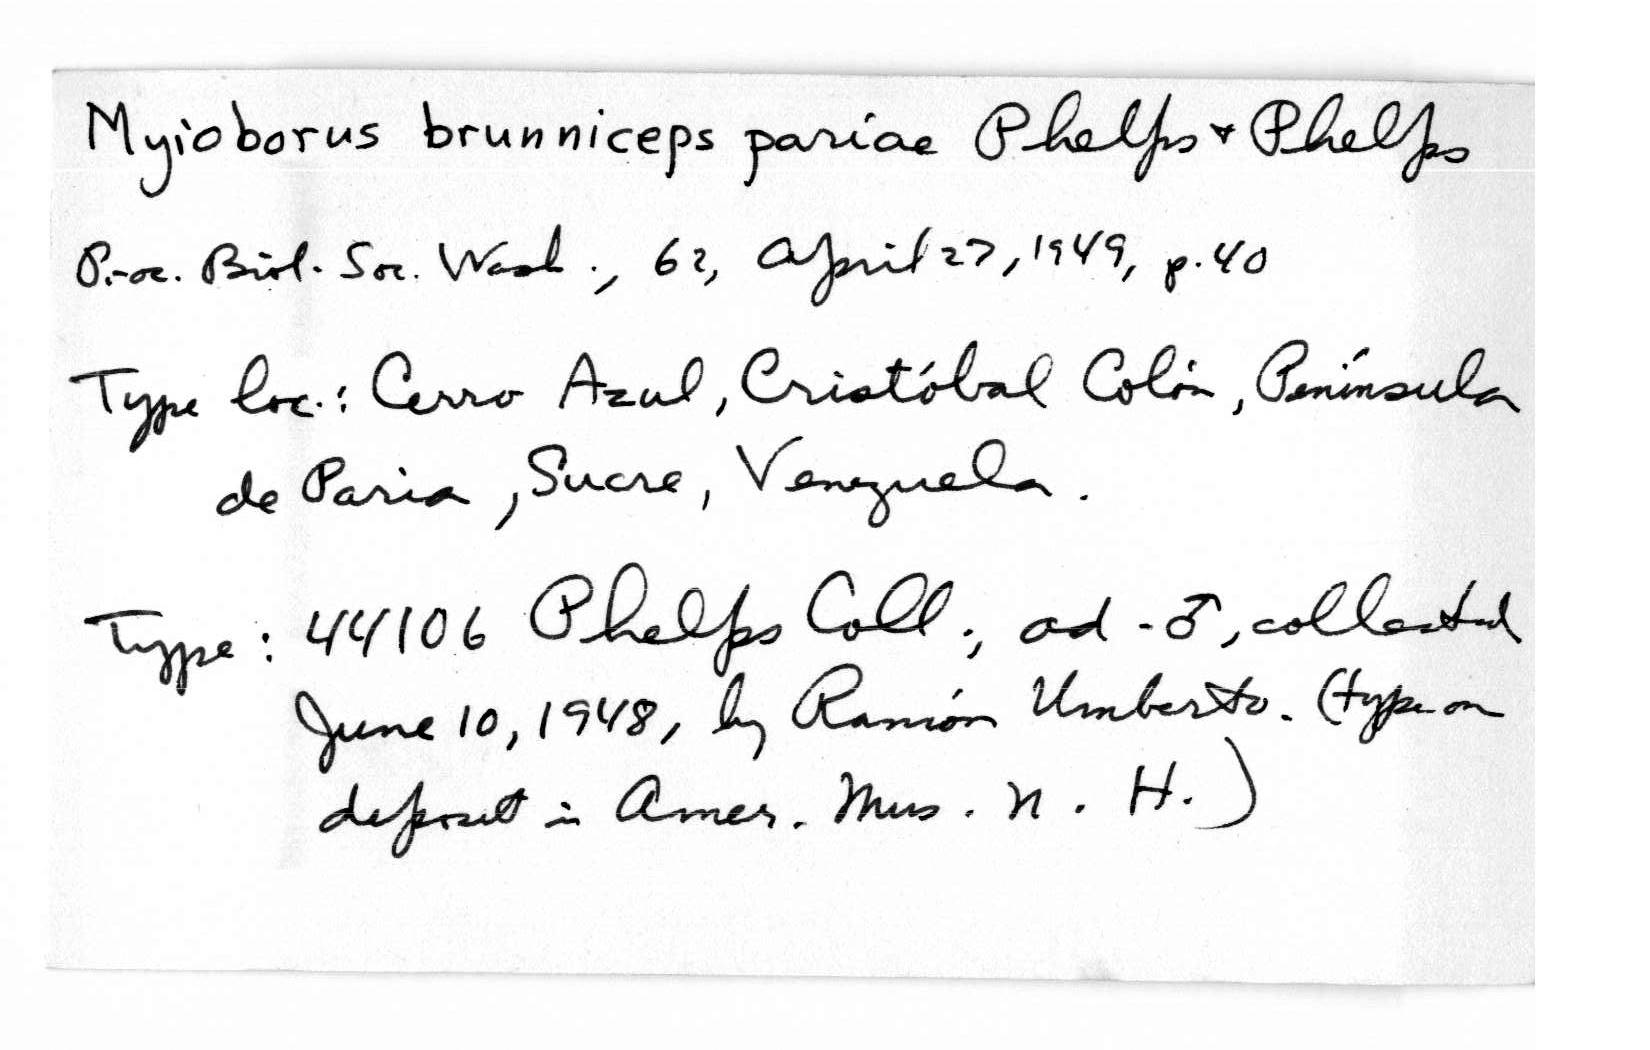 Myioborus brunniceps pariae Phelps & Phelps
Proc. Biol. Soc. Wash., 62, April 27, 1949, p. 40
Type loc.: Cerro Azul, Cristóbal Colón, Península
de Paria, Sucre, Venezuela.
Type: 44106 Phelps Coll.; ad. ♂, collected
June 10, 1948, by Ramón Umberto. (type on
deposit in Amer. Mus. N. H.)